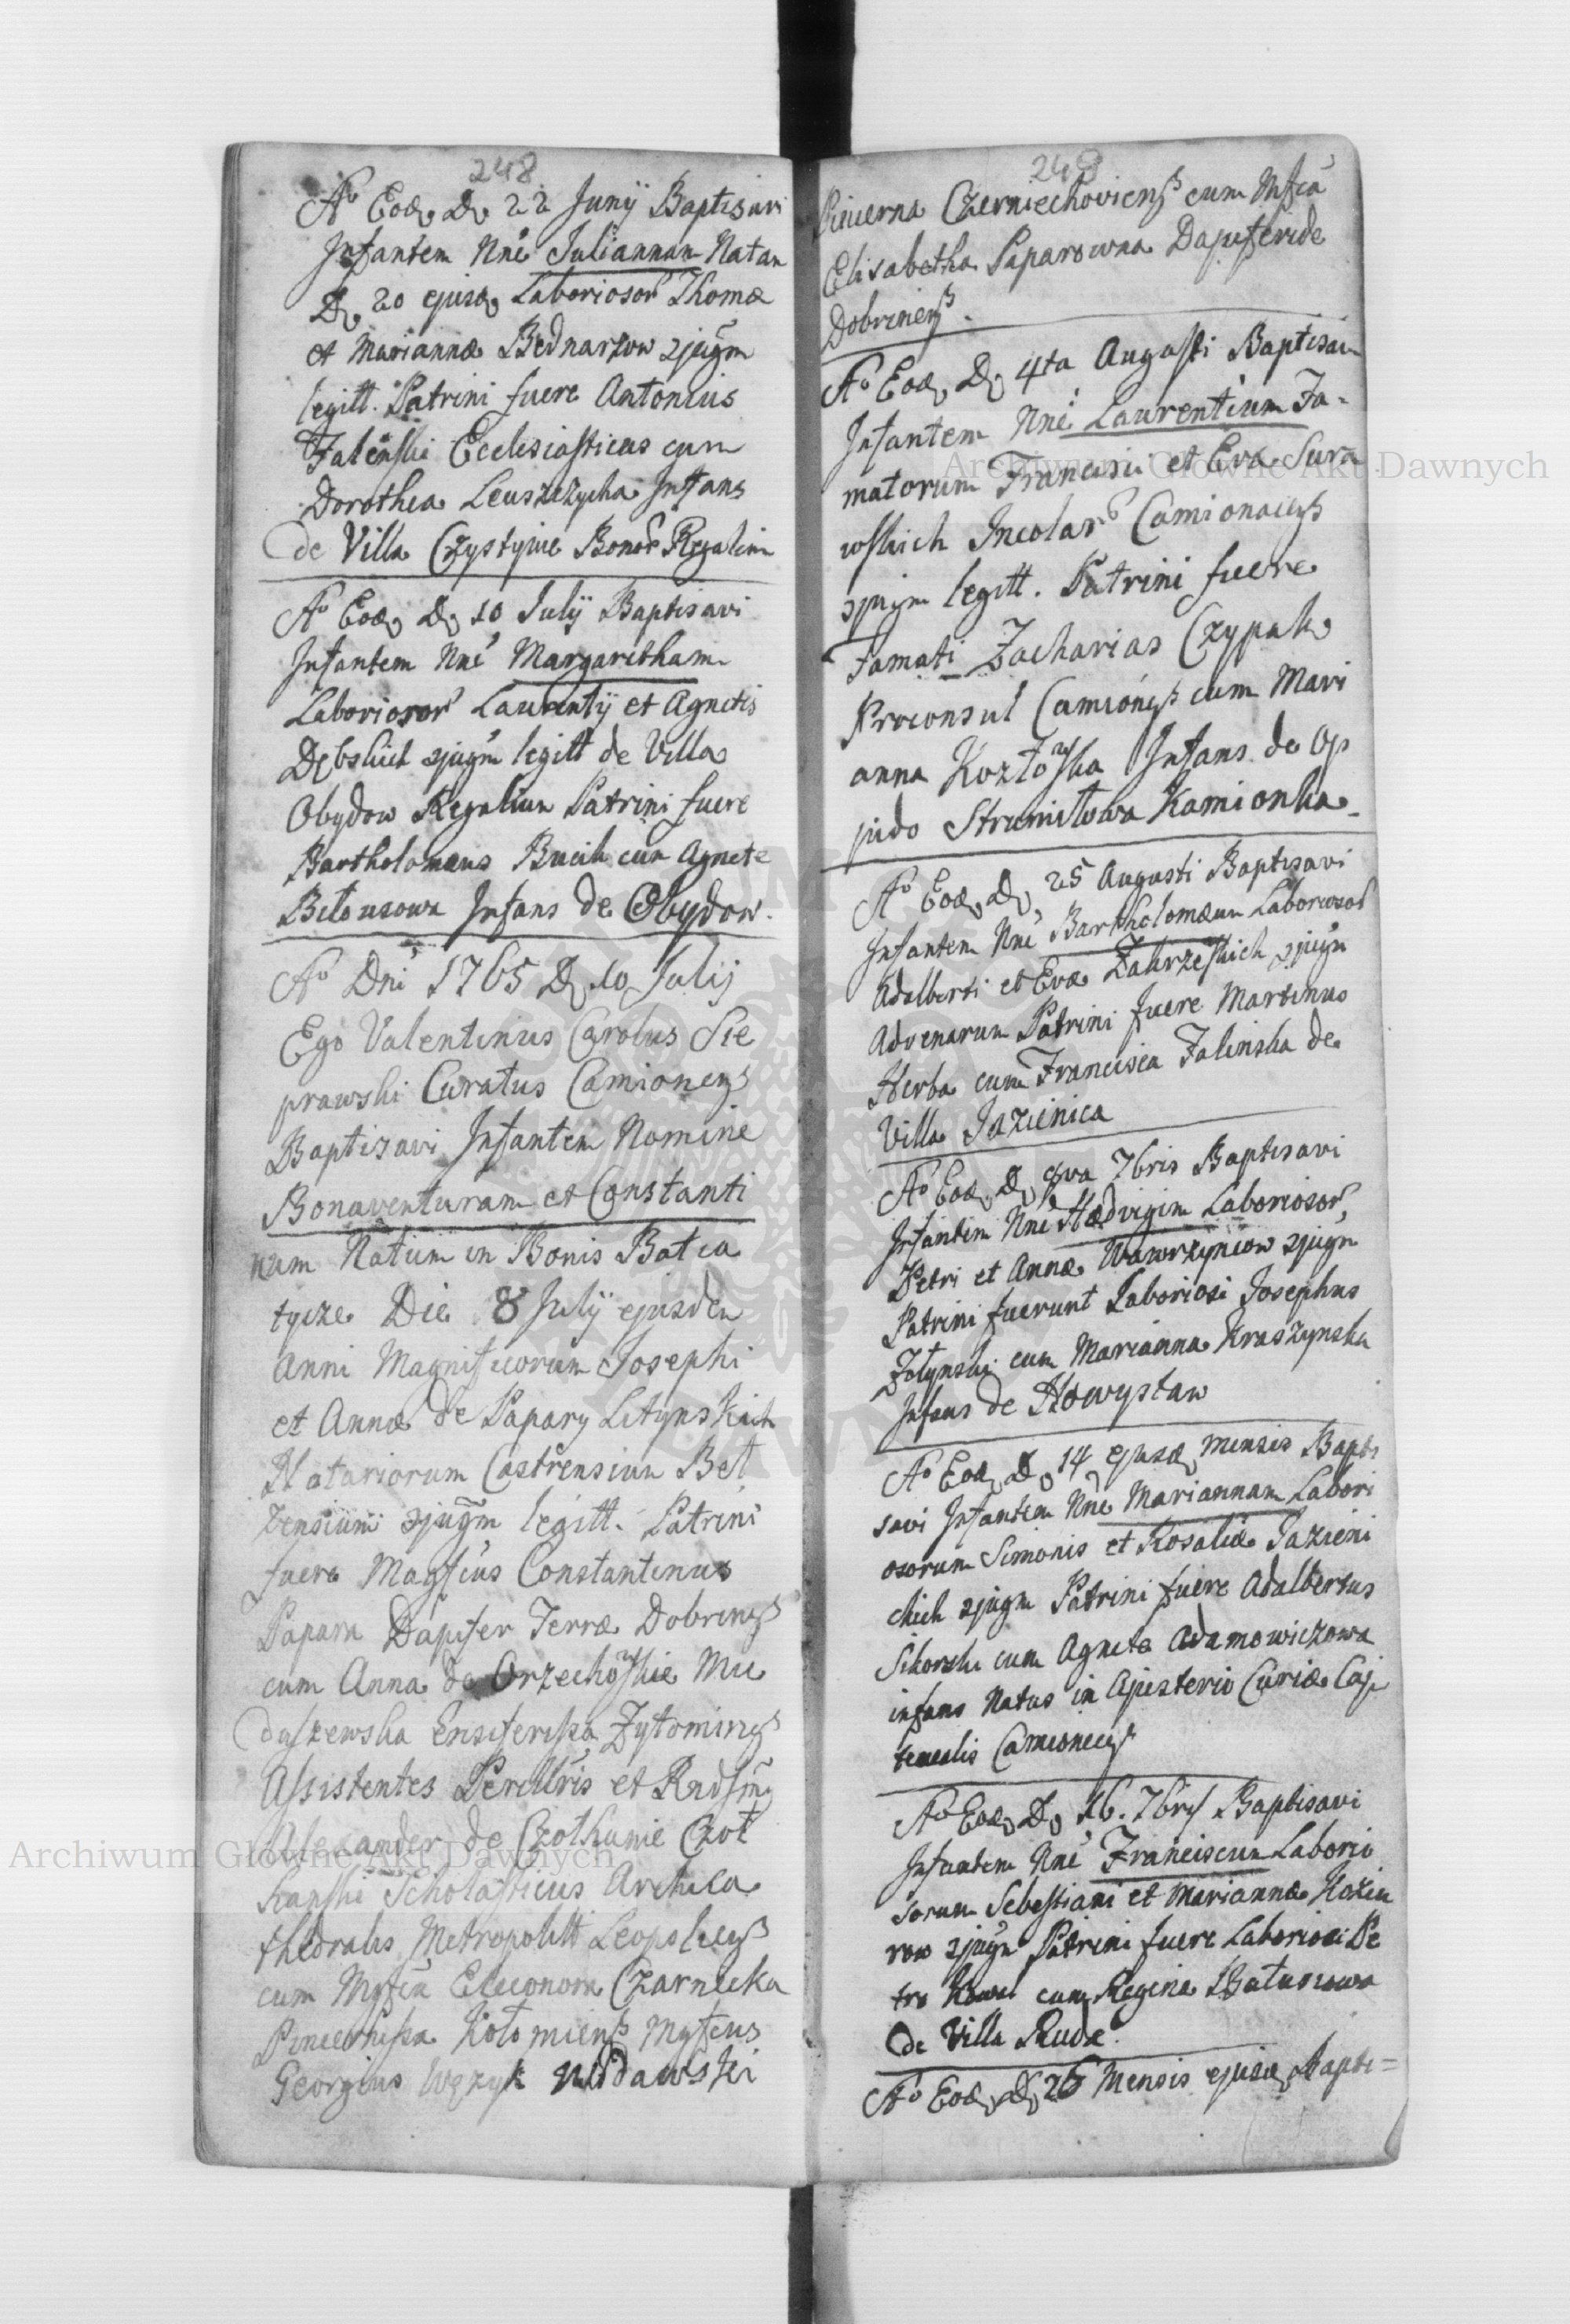 248
Ao Eod. D. 22 Junÿ Baptisavi
Infantem Nne Juliannam Natam
D. 20 ejusd. Laboriosor Thomæ
et Mariannæ Bednarzow cjugm
legitt. Patrini fuere Antonius
Falenski Ecclesiasticus cum
Dorothea Leuszczycha Infans
de Villa Czystynie Bonor Regalium
Ao Eod. D. 10 Julÿ Baptisavi
Infantem Nne Margaritham
Laboriosor Laurentÿ et Agnetis
Dębskich cjugm legitt de Villa
Obydow Regalium Patrini fuere
Bartholomæus Bucik cum Agnete
Infans de Obydow.
Ao Dni 1765 D. 10 Julij
Ego Valentinus Carolus Sie
prawski Curatus Camionens
Baptisavi Infantem Nomine
Bonaventuram et Constanti
num Natum in Bonis Batia
tycze Die 8 Julÿ ejusdem
Anni Magnificorum Josephi
et Annæ de Papary Lityńskich
Notariorum Castrensium Beł
zensium cjugm legitt. Patrini
fuere Magfcus Constantinus
Papara Dapifer Terræ Dobrinens
cum Anna de Orzechowskie Mie
duszewska Ensiferissa Zytomirens
Assistentes Perillris et Rndssmus
Alexander de Czołhanie Czoł
hanski Scholasticus Archica
thedralis Metropolitt Leopoliens
cum Mgfca Eleonora Czarnecka
Pincernissa Kołomiens Mgfcus
Georgius Wężyk Widawski
249
Pincerna Czerniechoviens cum Mfca
Elisabetha Paparowna Dapiferide
Dobrinens.
Ao Eod. D. 4ta Augusti Baptisavi
Infantem Nne Laurentium Fa-
matorum Francisci et Evæ Sura
wskich Incolar Camionacens
cjugm legitt. Patrini fuere
Famati Zacharias Czypak
Proconsul Camionens cum Mari
anna Kozłowska Infans de Op
pido Strumiłowa Kamionka.
Ao Eod. D. 25 Augusti Baptisavi
Infantem Nne Bartholomæum Laboriosor
Adalberti et Evæ Zakrzeskich cjugm
Advenarum Patrini fuere Martinus
Herba cum Francisca Falinska de
Villa Jazienica
Ao Eod. D. 8va 7bris Baptisavi
Infantem Nne Hedvigim Laboriosor,
Petri et Annæ Wawrzyncow cjugm
Patrini fuerunt Laboriosi Josephus
Zołynski cum Marianna Kraszynska
Infans de Nowystaw
Ao Eod. D. 14 ejusd. mensis Bapti
savi Infantem Nne Mariannam Labori
osorum Simonis et Rosaliæ Jazieni
ckich cjugm Patrini fuere Adalbertus
Sikorski cum Agnete Adamowiczowa
infans Natus in Apisterio Curiæ Capi
tanealis Camionecens
Ao Eod. D. 16. 7bris Baptisavi
Infantem Nne Franciscum Laborio
sorum Sebestiani et Mariannæ Koziu
row cjugm Patrini fuere Laboriosi Pe
tro Kowal cum Regina
de Villa Ruda.
Ao Eod. D. 26 Mensis ejusd. Bapti=
Archiwum Główne Akt Dawnych
Archiwum Główne Akt Dawnych